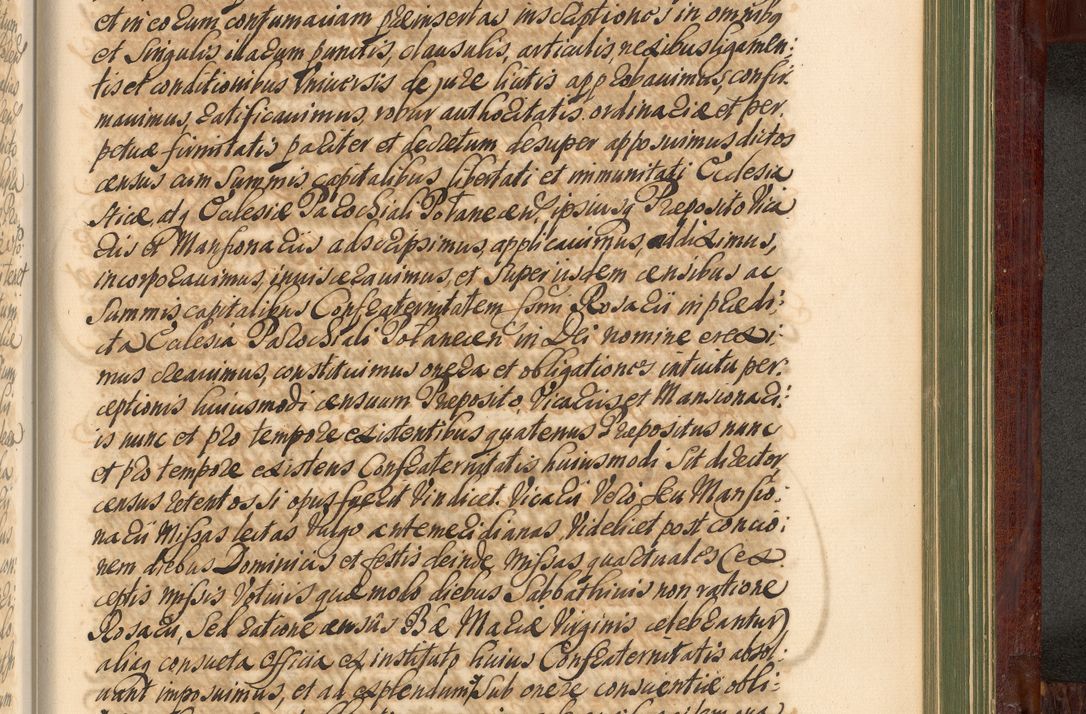 et in eorum confirmationem præinsertas inscriptiones in omnibq
et Singulis illarum punctis, clausulis, articulis, nexibus ligamen:
tis et conditionibus Universis de jure licitis approbavimus, confir
mavimus, ratificavimus, robur authoritatis ordinariæ et per,
petuæ firmitatis pariter et decretum desuper apposuimus dictos
census cum Summis capitalibus libertati et immunitati Ecclesia
sticæ, atq Ecclesiæ Parochiali Potanecen, ipsiusq Præposito Vica
riis et Mansionariis adscripsimus, applicavimus, addiximus,
incorporavimus, inviscеravimus, et Super iisdem censibus ac
Summis capitalibus Confraternitatem Ssmi Rosarii in prædi:
cta Ecclesia Parochiali Potanecen in Dei nomine erexi:
mus creavimus, constituimus onera et obligationes intuitu per:
ceptionis huiusmodi censuum Præposito, Vicariis et Mansionari:
is nunc et pro tempore existentibus quatenus Præpositus nunc
et pro tempore existens Confraternitatis huiusmodi Sit director
census retentos Si opus fuerit Vindicet. Vicarii Vero Seu Mansio:
narii Missas lectas Vulgo antemeridianas Videlicet post concio:
nem diebus Dominicis et festis deinde Missas quartuales (ex
ceptis missis Votivis quæ modo diebus Sabbathivis non ratione
Rosarii, Sed ratione census Bæ Mariæ Virginis celebrantur)
aliaq consueta officia ex instituto huius Confraternitatis absol:
vant imposuimus, et ad explendum Sub onere conscientiæ obli: